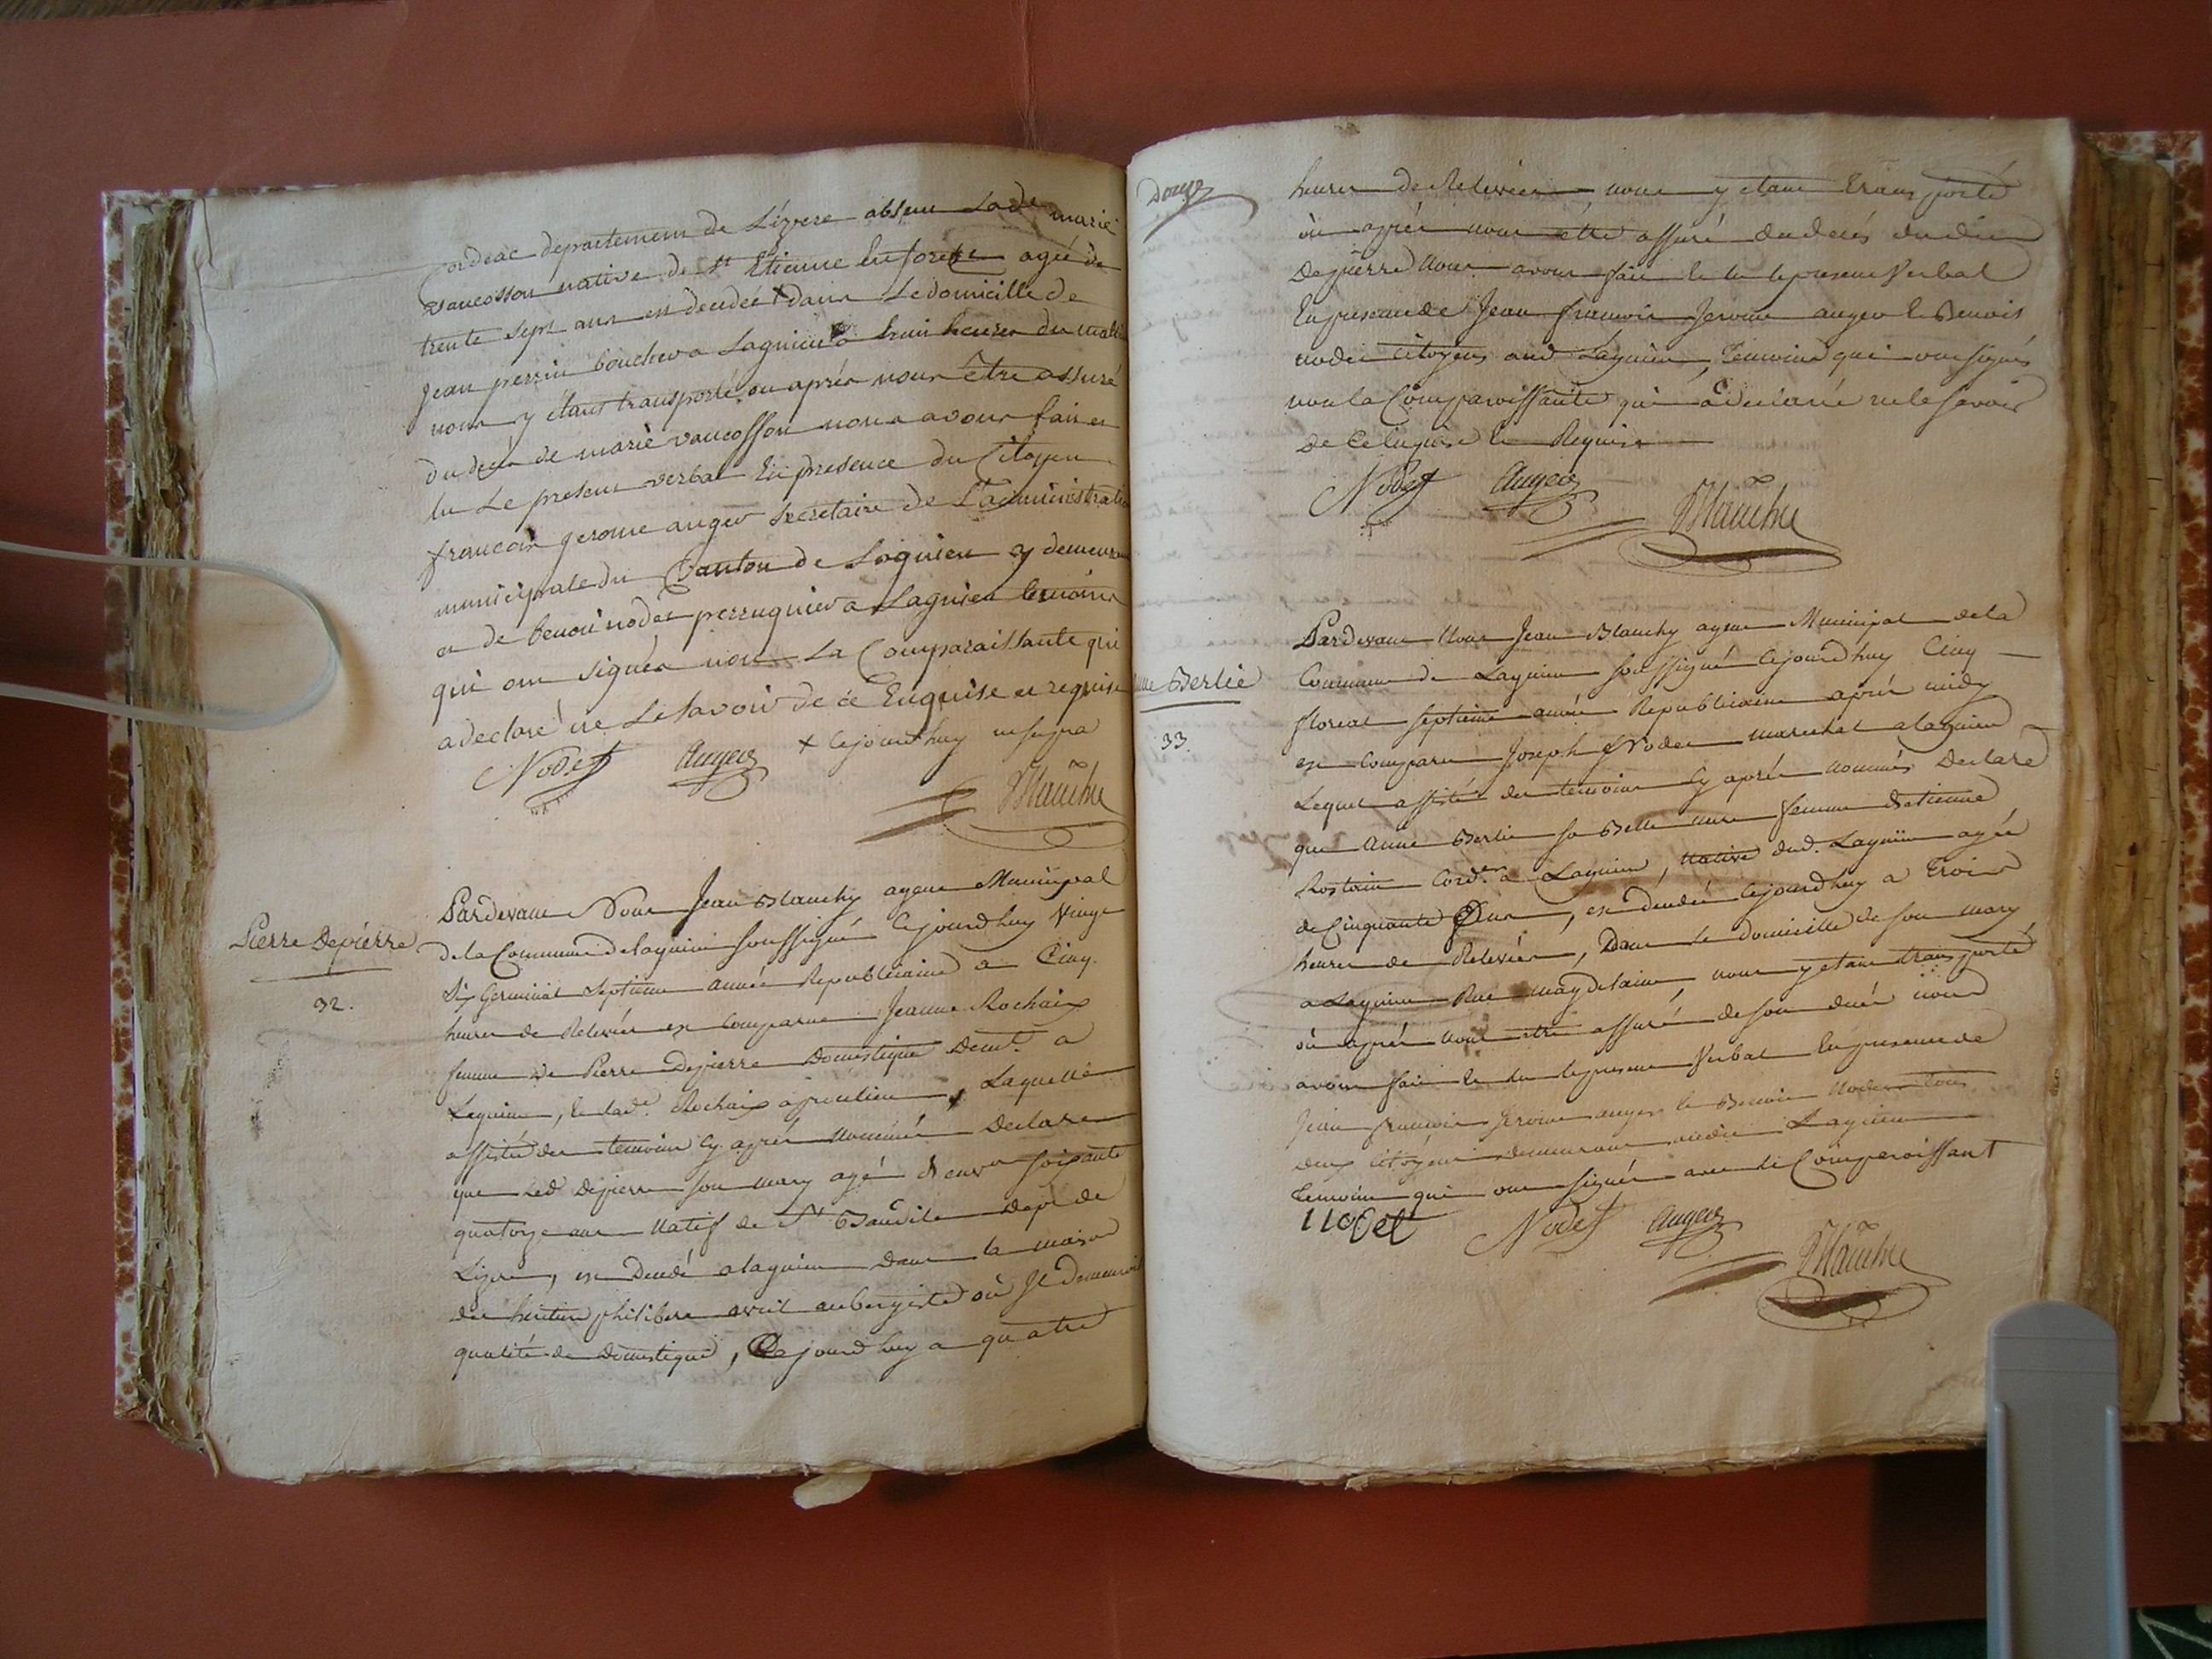 Cordeac departement de Lizere absent Lad.e marie
vaucosson native de St Etienne en forets agée de
trente sept ans est decedée + dans Le domicille de
Jean perrin boucher a Lagnieu a huit heures du matin
nous y étant transporté ou aprés nous être assuré
du decés de marie vaucosson nous avons fait et
lu Le present verbal En presence du Citoyen
francois gerome auger secretaire de L'administration
municipale du Canton de Lagnieu y demeurant
et de benoit nodet perruquier a Lagnieu temoins
qui ont signés non La Comparaissante qui
a declaré ne Le savoir de ce Enquise et requise
+ Cejourdhuy
Nodet Auger
Blanchy
Pierre Depierre
32.
Pardevant Nous Jean Blanchy agent Municipal
de la Commune de lagnieu soussigné Cejourdhuy Vingt
Six Germinal Septieme année Republicaine a Cinq
heures de Relevée est Comparue Jeanne Rochaix
femme de Pierre Depierre Domestique Demt. a
Lagnieu, et lade. Rochaix a Laquelle
assistée des temoins Cy aprés nommés Declare
que Led. Depierre son mary agé d'env.on soixante
quatorze ans Natif de St Baudile Dept. de
Lizere, est Decédé a lagnieu dans la maison
des heritiers philibert avril aubergiste où Il Demeuroit
qualité de Domestique, Cejourdhuy a quatre
Douze
heures de Relevée, nous y etant transporté
où aprés nous etre assuré du decés dudit
Depierre Nous avons fait et lu le present Verbal
En presence de Jean francois Jerome auger et Benoit
nodet Citoyens aud. Lagnieu, temoins qui ont signés
non la Comparoissante qui a declaré ne le savoir
de Ce Enquise et Requise
Nodet Auger
Blanchy
Berlie
33.
Pardevant Nous Jean Blanchy agent Municipal de la
Commune de Lagnieu soussigné Cejourdhuy Cinq
floreal septieme année Republicaine aprés midy
est Comparu Joseph Nodet marechal a lagnieu
Lequel assisté des temoins Cy aprés nommés Declare
que Anne Berlie sa Belle mere femme d'etienne
Rostain Cord.er a Lagnieu, Native dud. Lagnieu agée
de Cinquante ans, est decedée Cejourdhuy a trois
heures de Relevée, Dans le Domicille de son mary
a Lagnieu Rue magdelaine, nous y etant transporté
où aprés nous etre assuré de son decés nous
avons fait et lu le present Verbal En presence de
Jean francois Jerome auger et Benoit Nodet tous
deux Citoyens demeurant audit Lagnieu
temoins qui ont signés avec le Comparoissant
nodet Nodet Auger
Blanchy